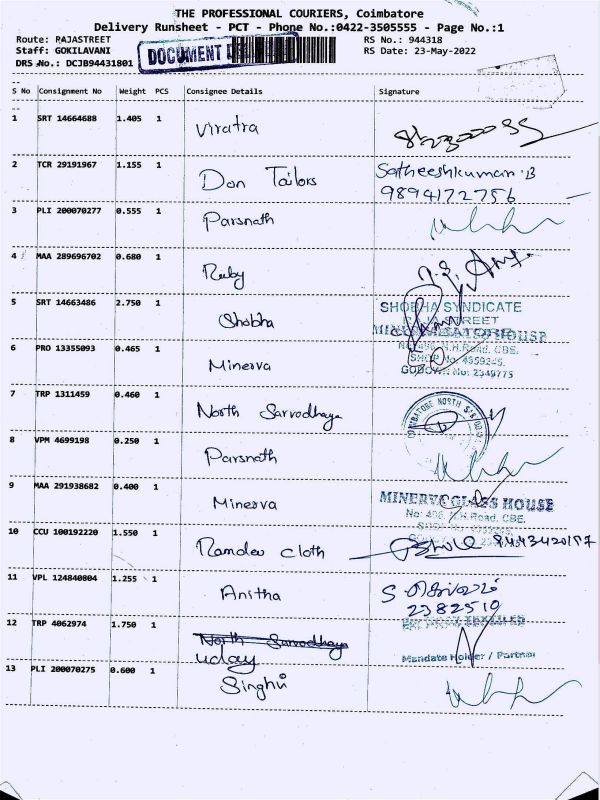 THE PROFESSIONAL COURIERS, Coimbatore
Delivery Runsheet - PCT - Phone No.:0422-3505555 - Page No.:1
Route: RAJASTREET RS No.: 944318
Staff: GOKILAVANI RS Date: 23-May-2022
DRS No.: DCJB94431801 DOCUMENT
S No Consignment No Weight PCS Consignee Details Signature
1 SRT 14664688 1.405 1 Viratra
2 TCR 29191967 1.155 1 Don Tailors Satheeshkumar.B
9894172756
3 PLI 200070277 0.555 1 Parsnath
4 MAA 289696702 0.680 1 Ruby
5 SRT 14663486 2.750 1 Shobha SHOBHA SYNDICATE
6 PRO 13355093 0.465 1 Minerva
7 TRP 1311459 0.460 1 North Sarvodhaya
8 VPM 4699198 0.250 1 Parsnath
9 MAA 291938682 0.400 1 Minerva MINERVA GLASS HOUSE
10 CCU 100192220 1.550 1 Ramdev cloth
11 VPL 124840804 1.255 1 Anitha
2382519
12 TRP 4062974 1.750 1 North Sarvodhaya
uday Mandate Holder / Partner
13 PLI 200070275 0.600 1 Singhvi